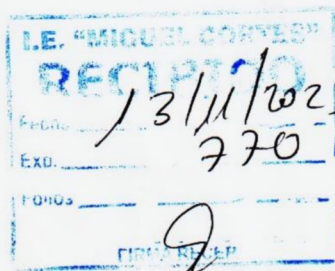 I.E. "MIGUEL CORTES"
RECIBIDO
FECHA 13/11/202
EXP. 770
FOLIOS
FIRMA RECEP